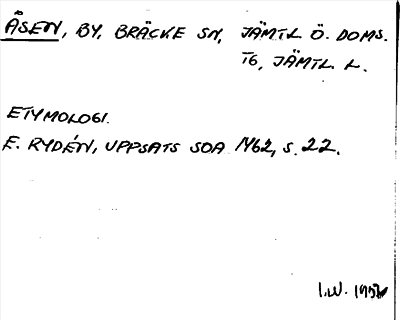 ÅSEN, BY, BRÄCKE SN, JÄMTL Ö. DOMS.
TG, JÄMTL L.
ETYMOLOGI.
E. RYDÉN, UPPSATS SOA 1462, S. 22.
I.W.